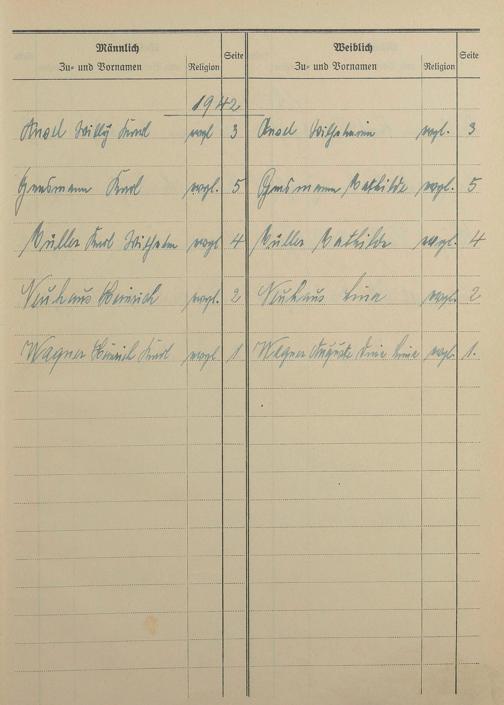 Männlich Weiblich
Zu- und Vornamen Religion Seite Zu- und Vornamen Religion Seite
1942
Willy Karl evgl 3 Wilhelmine evgl. 3
Karl evgl. 5 Mathilde evgl. 5
Müller Karl Wilhelm evgl 4 Müller Mathilde evgl. 4
Neuhaus Heinrich evgl. 2 Neuhaus Lina evgl. 2
Wagner Heinrich Karl evgl 1 Wagner Auguste Lina evgl. 1.